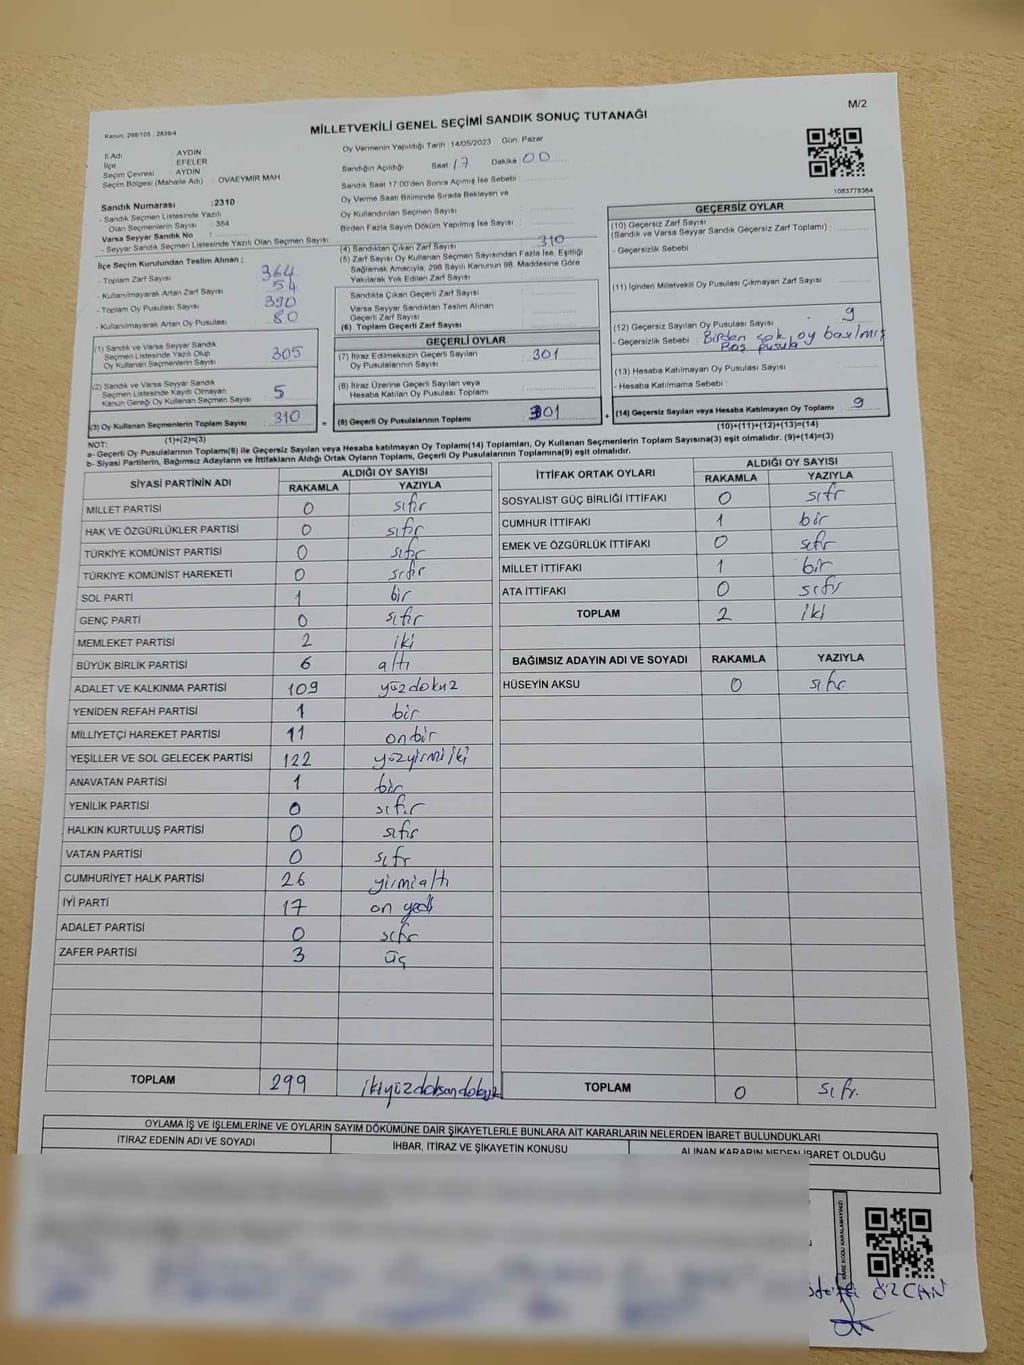 M/2
Kanun; 298/105 ; 2839/4
MİLLETVEKİLİ GENEL SEÇİMİ SANDIK SONUÇ TUTANAĞI
İl Adı : AYDIN
İlçe : EFELER
Seçim Çevresi : AYDIN
Seçim Bölgesi (Mahalle Adı) : OVAEYMİR MAH
Sandık Numarası :2310
- Sandık Seçmen Listesinde Yazılı
Olan Seçmenlerin Sayısı : 354
Varsa Seyyar Sandık No :
- Seyyar Sandık Seçmen Listesinde Yazılı Olan Seçmen Sayısı:
İlçe Seçim Kurulundan Teslim Alınan ;
- Toplam Zarf Sayısı 364
- Kullanılmayarak Artan Zarf Sayısı 54
- Toplam Oy Pusulası Sayısı 390
- Kullanılmayarak Artan Oy Pusulası 80
(1) Sandık ve Varsa Seyyar Sandık
Seçmen Listesinde Yazılı Olup
Oy Kullanan Seçmenlerin Sayısı 305
(2) Sandık ve Varsa Seyyar Sandık
Seçmen Listesinde Kayıtlı Olmayan
Kanun Gereği Oy Kullanan Seçmen Sayısı 5
(3) Oy Kullanan Seçmenlerin Toplam Sayısı 310
(1)+(2)=(3)
Oy Vermenin Yapıldığı Tarih :14/05/2023 Gün: Pazar
Sandığın Açıldığı Saat 17 Dakika 00
Sandık Saat 17:00'den Sonra Açımış İse Sebebi :
Oy Verme Saati Bitiminde Sırada Bekleyen ve
Oy Kullandırılan Seçmen Sayısı :
Birden Fazla Sayım Döküm Yapılmış İse Sayısı :
(4) Sandıktan Çıkan Zarf Sayısı 310
(5) Zarf Sayısı Oy Kullanan Seçmen Sayısından Fazla İse, Eşitliği
Sağlamak Amacıyla, 298 Sayılı Kanunun 98. Maddesine Göre
Yakılarak Yok Edilen Zarf Sayısı
Sandıkta Çıkan Geçerli Zarf Sayısı :
Varsa Seyyar Sandıktan Teslim Alınan
Geçerli Zarf Sayısı :
(6) Toplam Geçerli Zarf Sayısı :
GEÇERLİ OYLAR
(7) İtiraz Edilmeksizin Geçerli Sayılan
Oy Pusulalarının Sayısı 301
(8) İtiraz Üzerine Geçerli Sayılan veya
Hesaba Katılan Oy Pusulası Toplamı
(9) Geçerli Oy Pusulalarının Toplamı 301
1083778364
GEÇERSİZ OYLAR
(10) Geçersiz Zarf Sayısı
(Sandık ve Varsa Seyyar Sandık Geçersiz Zarf Toplamı) :
- Geçersizlik Sebebi :
(11) İçinden Milletvekili Oy Pusulası Çıkmayan Zarf Sayısı
(12) Geçersiz Sayılan Oy Pusulası Sayısı 9
- Geçersizlik Sebebi : Birden çok oy basılmış
Boş pusula
(13) Hesaba Katılmayan Oy Pusulası Sayısı
- Hesaba Katılmama Sebebi :
(14) Geçersiz Sayılan veya Hesaba Katılmayan Oy Toplamı 9
(10)+(11)+(12)+(13)=(14)
NOT:
a- Geçerli Oy Pusulalarının Toplamı(9) ile Geçersiz Sayılan veya Hesaba katılmayan Oy Toplamı(14) Toplamları, Oy Kullanan Seçmenlerin Toplam Sayısına(3) eşit olmalıdır. (9)+(14)=(3)
b- Siyasi Partilerin, Bağımsız Adayların ve İttifakların Aldığı Ortak Oyların Toplamı, Geçerli Oy Pusulalarının Toplamına(9) eşit olmalıdır.
SİYASİ PARTİNİN ADI ALDIĞI OY SAYISI
RAKAMLA YAZIYLA
MİLLET PARTİSİ 0 sıfır
HAK VE ÖZGÜRLÜKLER PARTİSİ 0 sıfır
TÜRKİYE KOMÜNİST PARTİSİ 0 sıfır
TÜRKİYE KOMÜNİST HAREKETİ 0 sıfır
SOL PARTİ 1 bir
GENÇ PARTİ 0 sıfır
MEMLEKET PARTİSİ 2 iki
BÜYÜK BİRLİK PARTİSİ 6 altı
ADALET VE KALKINMA PARTİSİ 109 yüzdokuz
YENİDEN REFAH PARTİSİ 1 bir
MİLLİYETÇİ HAREKET PARTİSİ 11 onbir
YEŞİLLER VE SOL GELECEK PARTİSİ 122 yüzyirmi iki
ANAVATAN PARTİSİ 1 bir
YENİLİK PARTİSİ 0 sıfır
HALKIN KURTULUŞ PARTİSİ 0 sıfır
VATAN PARTİSİ 0 sıfır
CUMHURİYET HALK PARTİSİ 26 yirmialtı
İYİ PARTİ 17 on yedi
ADALET PARTİSİ 0 sıfır
ZAFER PARTİSİ 3 üç
TOPLAM 299 ikiyüzdoksandokuz
İTTİFAK ORTAK OYLARI ALDIĞI OY SAYISI
RAKAMLA YAZIYLA
SOSYALİST GÜÇ BİRLİĞİ İTTİFAKI 0 sıfır
CUMHUR İTTİFAKI 1 bir
EMEK VE ÖZGÜRLÜK İTTİFAKI 0 sıfır
MİLLET İTTİFAKI 1 bir
ATA İTTİFAKI 0 sıfır
TOPLAM 2 iki
BAĞIMSIZ ADAYIN ADI VE SOYADI RAKAMLA YAZIYLA
HÜSEYİN AKSU 0 sıfır
TOPLAM 0 sıfır.
OYLAMA İŞ VE İŞLEMLERİNE VE OYLARIN SAYIM DÖKÜMÜNE DAİR ŞİKAYETLERLE BUNLARA AİT KARARLARIN NELERDEN İBARET BULUNDUKLARI
İTİRAZ EDENİN ADI VE SOYADI İHBAR, İTİRAZ VE ŞİKAYETİN KONUSU ALINAN KARARIN NEDEN İBARET OLDUĞU
KARE KODU KARALAMAYINIZ!
ÖZCAN